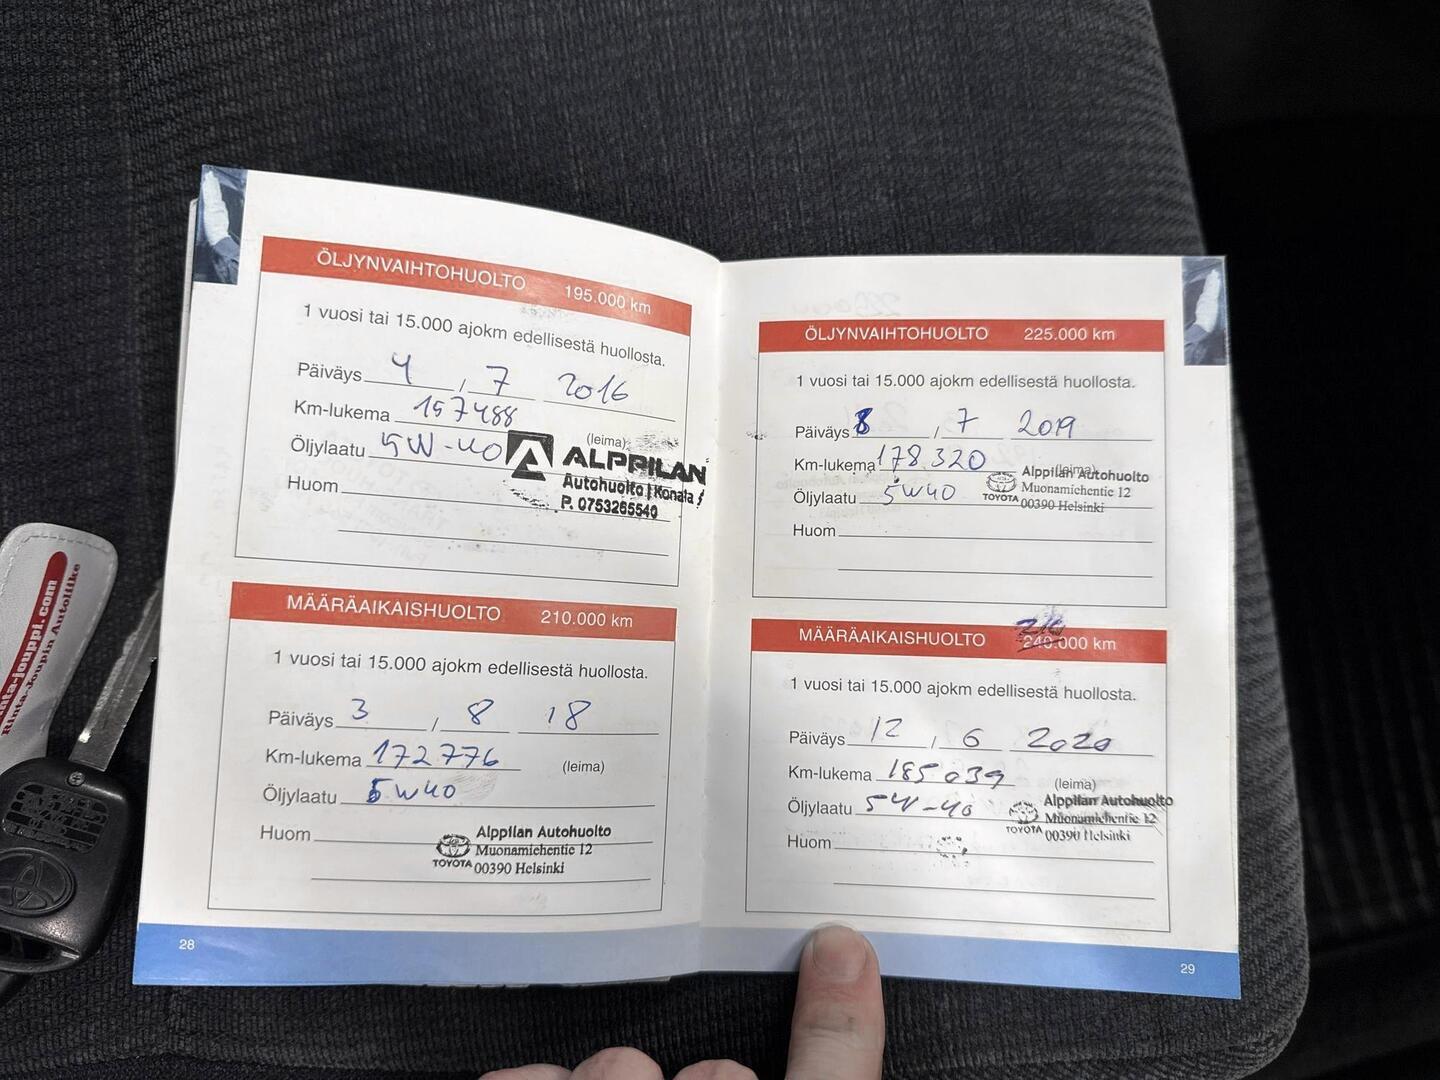 ÖLJYNVAIHTOHUOLTO 195.000 km
1 vuosi tai 15.000 ajokm edellisestä huollosta.
Päiväys 4 / 7 2016
Km-lukema 157488
(leima)
Öljylaatu 5W-40
ALPPILAN
Autohuolto | Konala
P. 0753265540
Huom
MÄÄRÄAIKAISHUOLTO 210.000 km
1 vuosi tai 15.000 ajokm edellisestä huollosta.
Päiväys 3 / 8 18
Km-lukema 172776 (leima)
Öljylaatu 5W40
Huom
Alppilan Autohuolto
Muonamiehentie 12
TOYOTA 00390 Helsinki
28
ÖLJYNVAIHTOHUOLTO 225.000 km
1 vuosi tai 15.000 ajokm edellisestä huollosta.
Päiväys 8 / 7 2019
Km-lukema 178320 (leima)
Öljylaatu 5W40
Alppilan Autohuolto
TOYOTA Muonamiehentie 12
00390 Helsinki
Huom
MÄÄRÄAIKAISHUOLTO 240.000 km
1 vuosi tai 15.000 ajokm edellisestä huollosta.
Päiväys 12 / 6 2020
Km-lukema 185039 (leima)
Öljylaatu 5W-40
Alppilan Autohuolto
Muonamiehentie 12
TOYOTA 00390 Helsinki
Huom
29
nta-jouppi.com
Rinta-Joupin Autoliike